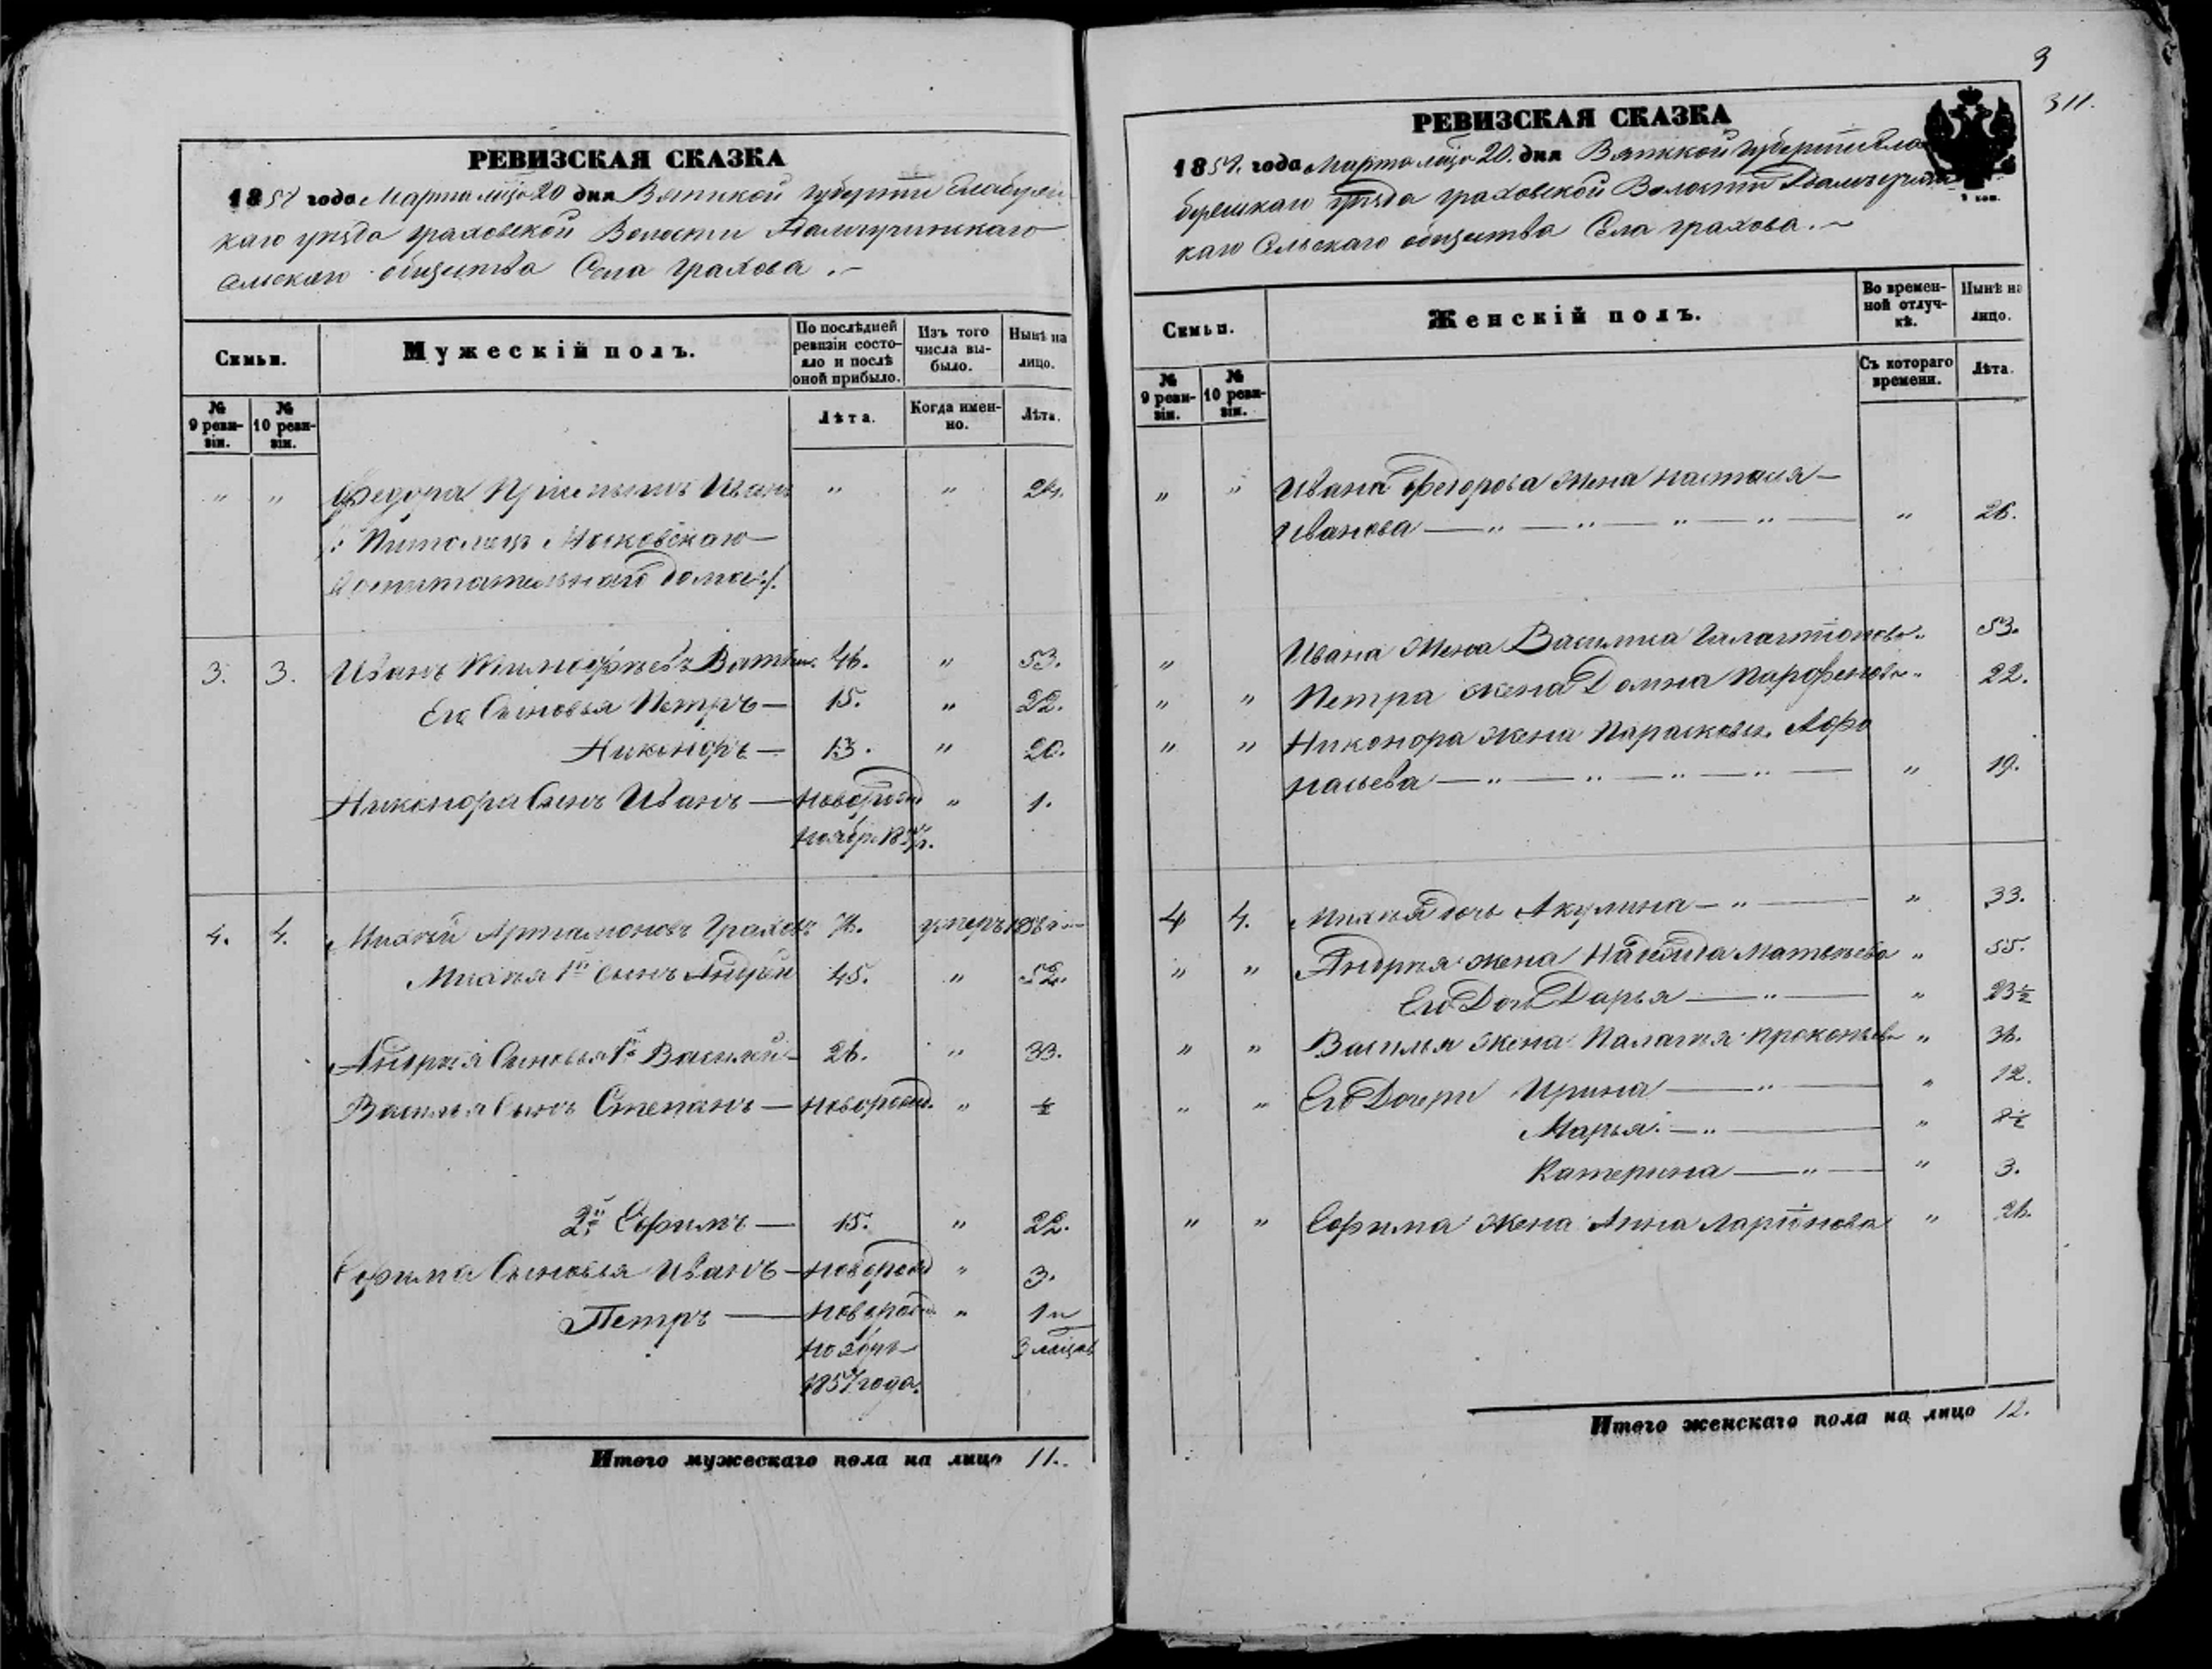 РЕВИЗСКАЯ СКАЗКА
1857 года Марта мца 20 дня Вятской губернии Елабужс
каго уѣзда граховской Волости
сельскаго общества Села грахова.
Семьи.
Мужескій полъ.
По послѣдней ревизіи состояло и послѣ оной прибыло.
Изъ того числа выбыло.
Нынѣ на лицо.
№ 9 ревизіи.
№ 10 ревизіи.
Лѣта.
Когда именно.
Лѣта.
" " Федора Пріемышъ Иванъ " " 24.
/: Питомецъ Московскаго
Воспитательнаго дома :/.
3. 3. Иванъ Тимофѣевъ 46. " 53.
Его Сыновья Петръ — 15. " 22.
Никоноръ — 13. " 20.
Никонора Сынъ Иванъ — новорожд " 1.
ноябр.
4. 4. Михѣй Артамоновъ Граховъ умеръ
Михѣя 1й Сынъ Андрей 45. " 52.
Андрея Сыновья 1й Василій — 26. " 33.
Василья Сынъ Степанъ — новорожд. " ½
2й Ефимъ — 15. " 22.
Ефима Сыновья Иванъ — новорожд " 3.
Петръ — новорожд. " 1 и
ноябрь 3 мѣсяц
года.
Итого мужескаго пола на лицо 11.
3
311.
РЕВИЗСКАЯ СКАЗКА
1857. года Марта мца 20. дня Вятской губерніи Ела
уѣзда граховской Волости
каго Сельскаго общества Села грахова. —
Семьи.
Женскій полъ.
Во временной отлучкѣ.
Нынѣ на лицо.
№ 9 ревизіи.
№ 10 ревизіи.
Съ котораго времени.
Лѣта.
" " Ивана Федорова жена настасья —
Иванова — " — " — " — " — " 26.
" Ивана жена Василиса " 53.
" " Петра жена Домна Парфенова " 22.
" " Никонора жена Парасковья Афо
насьева — " — " — " — " — " 19.
4 4. Михѣя дочь Акулина — " — " 33.
" " Андрея жена Матвѣева " 55.
Его Дочь Дарья — " — " 23½
" " Василья жена Палагея Прокопьева " 36.
" " Его Дочери Ирина — " — " 12.
Марья. — " — "
Катерина — " — " 3.
" " Ефима жена Анна Ларіонова " 26.
Итого женскаго пола на лицо 12.